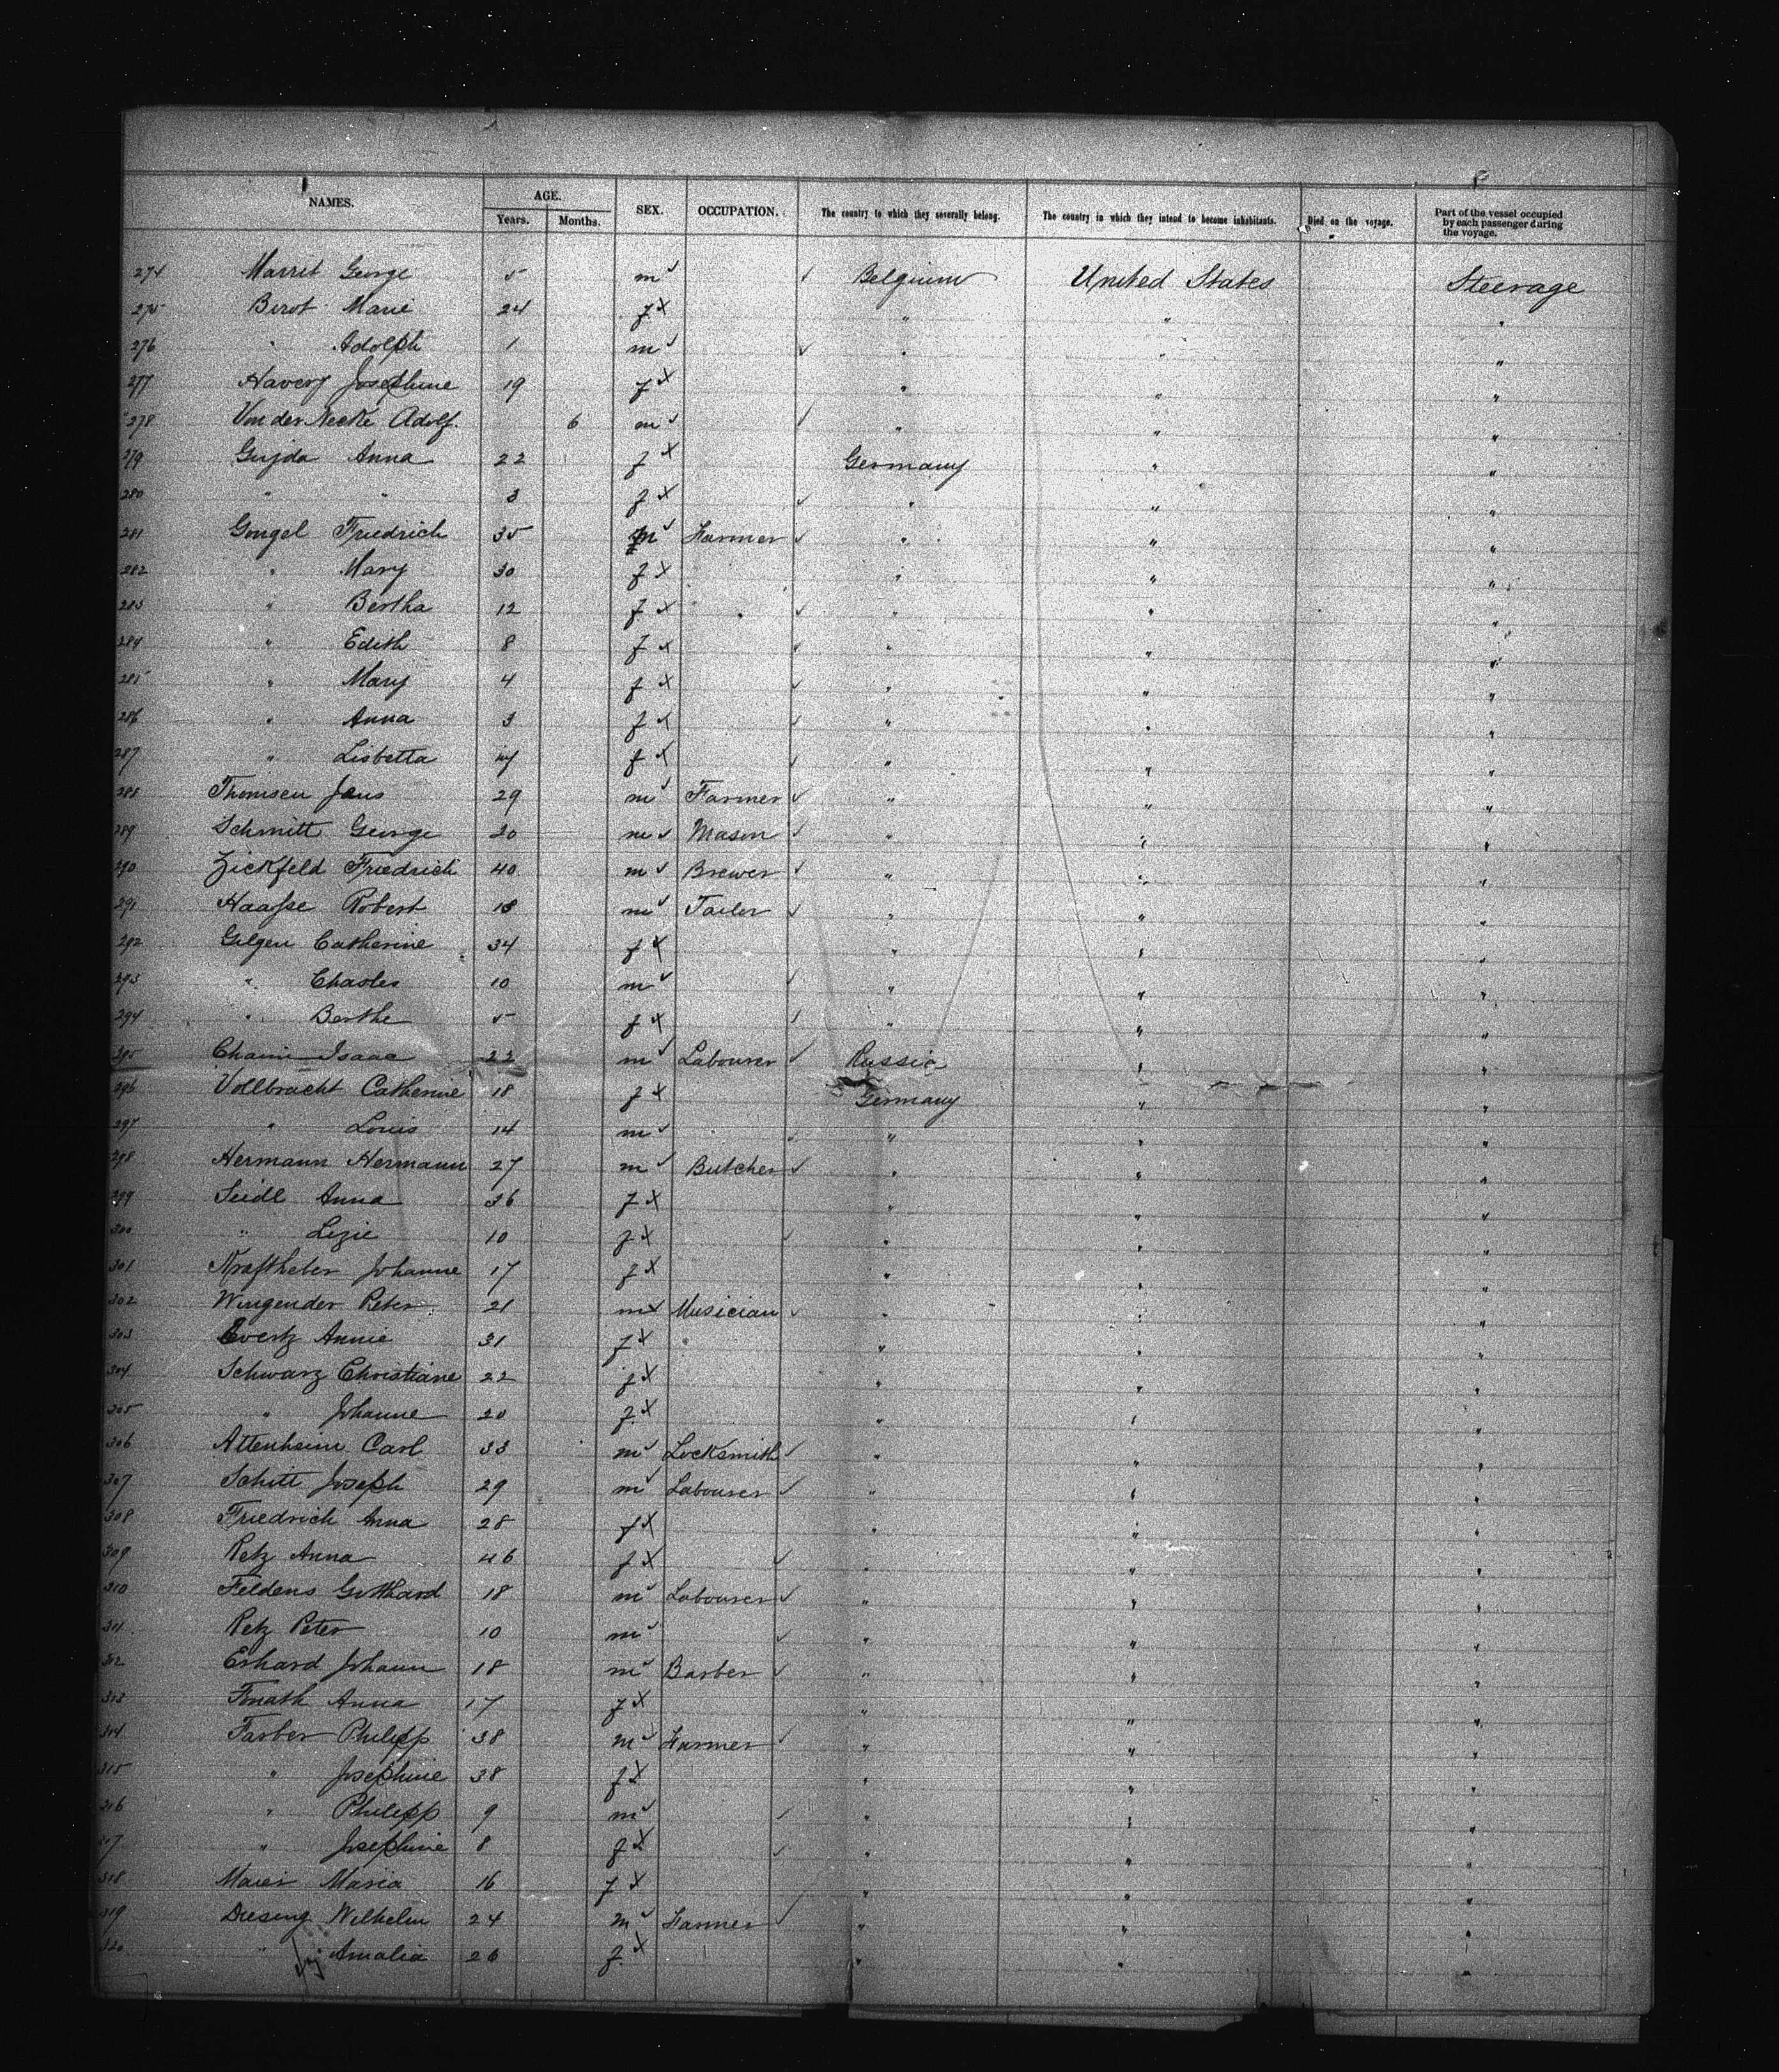 NAMES. AGE. Years. Months. SEX. OCCUPATION. The country to which they severally belong. The country in which they intend to become inhabitants. Died on the voyage. Part of the vessel occupied by each passenger during the voyage.
274 Marret George 5 m Belgium United States Steerage
275 Birot Marie 24 f " " "
276 " Adolph 1 m " " "
277 Havery Josephine 19 f " " "
278 Van der Necke Adolf. 6 m " " "
279 Gujda Anna 22 f Germany " "
280 " " 3 f " " "
281 Gongel Friedrich 35 m Farmer " " "
282 " Mary 30 f " " "
283 " Bertha 12 f " " "
284 " Edith 8 f " " "
285 " Mary 4 f " " "
286 " Anna 3 f " " "
287 " Lisbetta f " " "
288 Thomsen Jens 29 m Farmer " " "
289 Schmitt George 20 m Mason " " "
290 Zickfeld Friedrich 40 m Brewer " " "
291 Haafse Robert 18 m Tailor " " "
292 Gilgen Catherine 34 f " " "
293 " Charles 10 m " " "
294 " Berthe 5 f " " "
295 Chaim Isaac 22 m Labourer Russia " "
296 Vollbracht Catherine 18 f Germany " "
297 " Louis 14 m " " "
298 Hermann Hermann 27 m Butcher " " "
299 Seidl Anna 36 f " " "
300 " Lizie 10 f " " "
301 Kraftheber Johanne 17 f " " "
302 Wingender Peter 21 m Musician " " "
303 Evertz Annie 31 f " " "
304 Schwarz Christiane 22 f " " "
305 " Johanne 20 f " " "
306 Attenheim Carl 33 m Locksmith " " "
307 Schitt Joseph 29 m Labourer " " "
308 Friedrich Anna 28 f " " "
309 Retz Anna 46 f " " "
310 Feldens Gotthard 18 m Labourer " " "
311 Retz Peter 10 m " " "
312 Erhard Johann 18 m Barber " " "
313 Fonath Anna 17 f " " "
314 Farber Philipp 38 m Farmer " " "
315 " Josephine 38 f " " "
316 " Philipp 9 m " " "
317 " Josephine 8 f " " "
318 Maier Maria 16 f " " "
319 Diesing Wilhelm 24 m Farmer " " "
320 " Amalia 26 f " " "